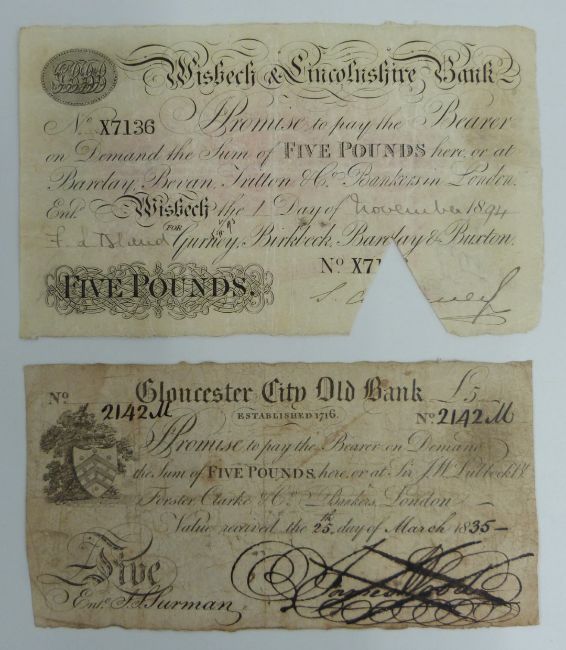 Wisbech & Lincolnshire Bank
No. X7136 I Promise to pay the Bearer
on Demand the Sum of FIVE POUNDS here, or at
Barclay, Bevan, Tritton & Co. Bankers in London.
Entd. Wisbech the 1 Day of November 1894
FOR Gurney, Birkbeck, Barclay & Buxton.
No X71
FIVE POUNDS.
Gloucester City Old Bank £5
No 2142M ESTABLISHED 1716. No. 2142M
I Promise to pay the Bearer on Demand
the Sum of FIVE POUNDS, here, or at Sir J.W. Lubbock Bt.
Forster Clarke & Co. Bankers, London
Value received the 25th day of March 1835
Five
Entd. J. Surman